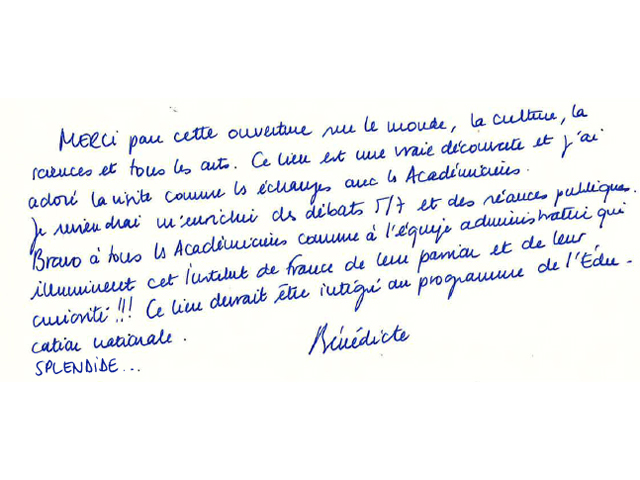 MERCI pour cette ouverture sur le monde, la culture, la
sciences et tous les arts. Ce lieu est une vraie découverte et j'ai
adoré la visite comme les échanges avec les Académiciens.
Je reviendrai m'enrichir des débats 5/7 et des séances publiques.
Bravo à tous les Académiciens comme à l'équipe administrative qui
illuminent cet Institut de France de leur passion et de leur
curiosité !!! Ce lieu devrait être intégré au programme de l'Édu-
cation nationale.
Bénédicte
SPLENDIDE...